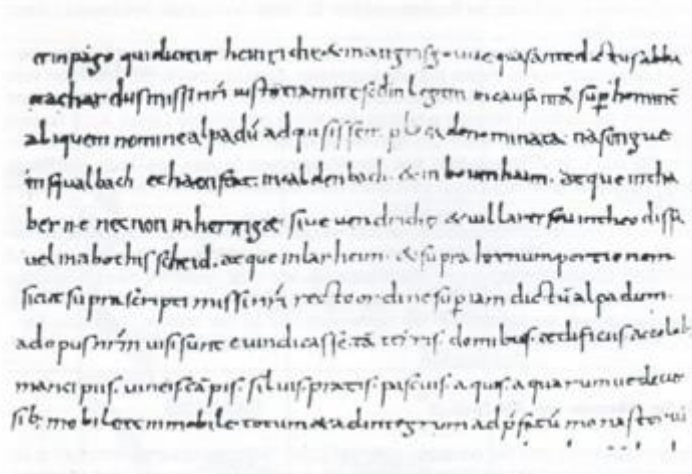 et in pago qui dicitur heinriche & in angrisg que ante dictus abba
machardus missi nrī iusto tramite scdm legem in causa ntā sup homine
aliquem nomine alpadū ad quisissent loca denominata nasungue
in squalbach et haonstat. in valdenbach. & in bouenhaim. atque in cha
berne nec non in herrigse sive vendrich & vvillarer seu in theodissa
vel in bochisscheid. atque in larheim & supra hornum portionem
sicut suprascripti missi nrī recto ordine supiam dictū alpadum
ad opus nrm visi sunt evindicasse. tā terris. domibus. aedificiis. accolab;
mancipiis. vineis cāpis. silvis. pratis. pascuis. aquis. aquarumve decur
sib; mobile et inmobile. totum & ad integrum ad pfatū monasterii